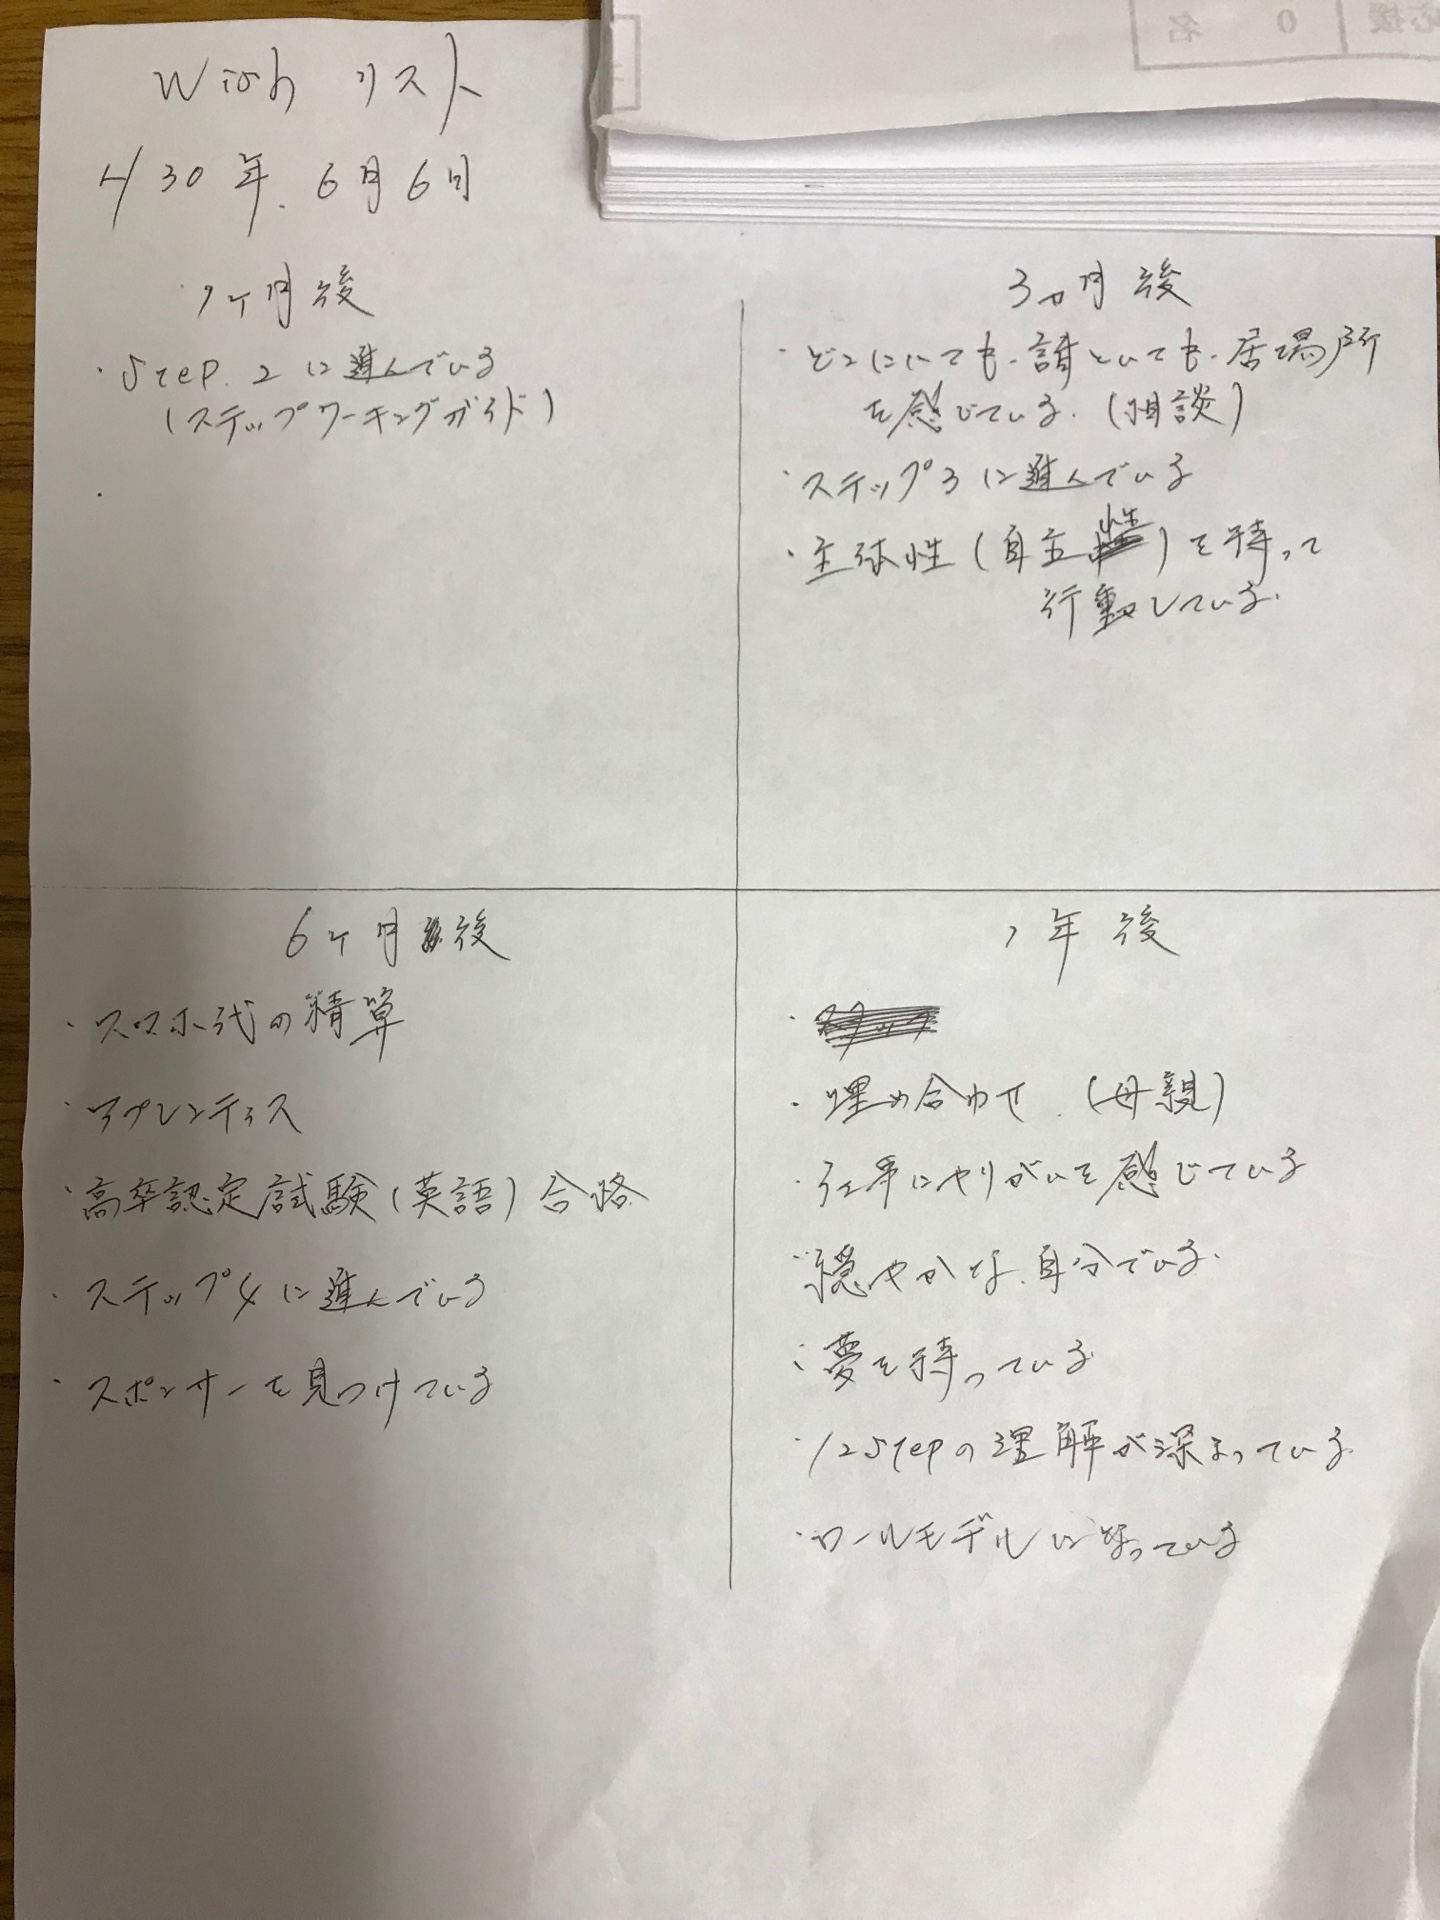 Wish リスト
H30年.6月6日
1ヶ月後
・Step.2に進んでいる
(ステップワーキングガイド)
・
3ヵ月後
・どこにいても・誰といても・居場所
を感じている.(相談)
・ステップ3に進んでいる
・主体性(自主性)を持って
行動している.
6ヶ月後
・スマホ代の精算
・アプレンティス
・高卒認定試験(英語)合格
・ステップ4に進んでいる
・スポンサーを見つけている
1年後
・埋め合わせ.(母親)
・仕事にやりがいを感じている
・穏やかな自分でいる.
・夢を持っている
・12stepの理解が深まっている
・ロールモデルになっている
応援
0
名